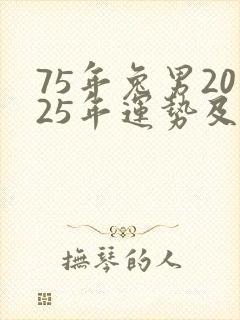 75年兔男20
25年運勢及
撫琴的人